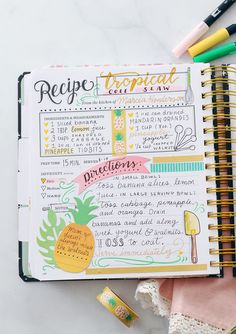 Recipe tropical
COLE SLAW
From the kitchen of Marcia
INGREDIENTS & MEASUREMENTS
1 sliced banana
2 TBSP lemon juice
3 cups shredded CABBAGE
PINEAPPLE TIDBITS
1 can drained
MANDARIN ORANGES
1 cup
YOGURT
1 cup chopped
WALNUTS
PREP TIME 15 MIN SERVES
Directions:
IN SMALL BOWL
toss banana slices, lemon
juice. In LARGE SERVING BOWL
toss cabbage, pineapple,
and oranges. Drain
bananas and add along
with yogurt & walnuts
TOSS to coat.
Serve immediately
NOTES
Mom
always
the
walnuts